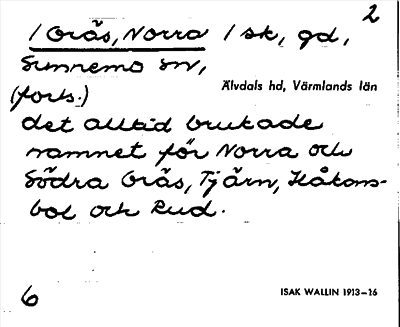 2
/ Grås, Norra / sk, gd,
Sunnemo sn,
(forts.) Älvdals hd, Värmlands län
det alltid brukade
namnet för Norra och
Södra Grås, Tjärn, Håkons-
bol och Rud.
6 ISAK WALLIN 1913–16